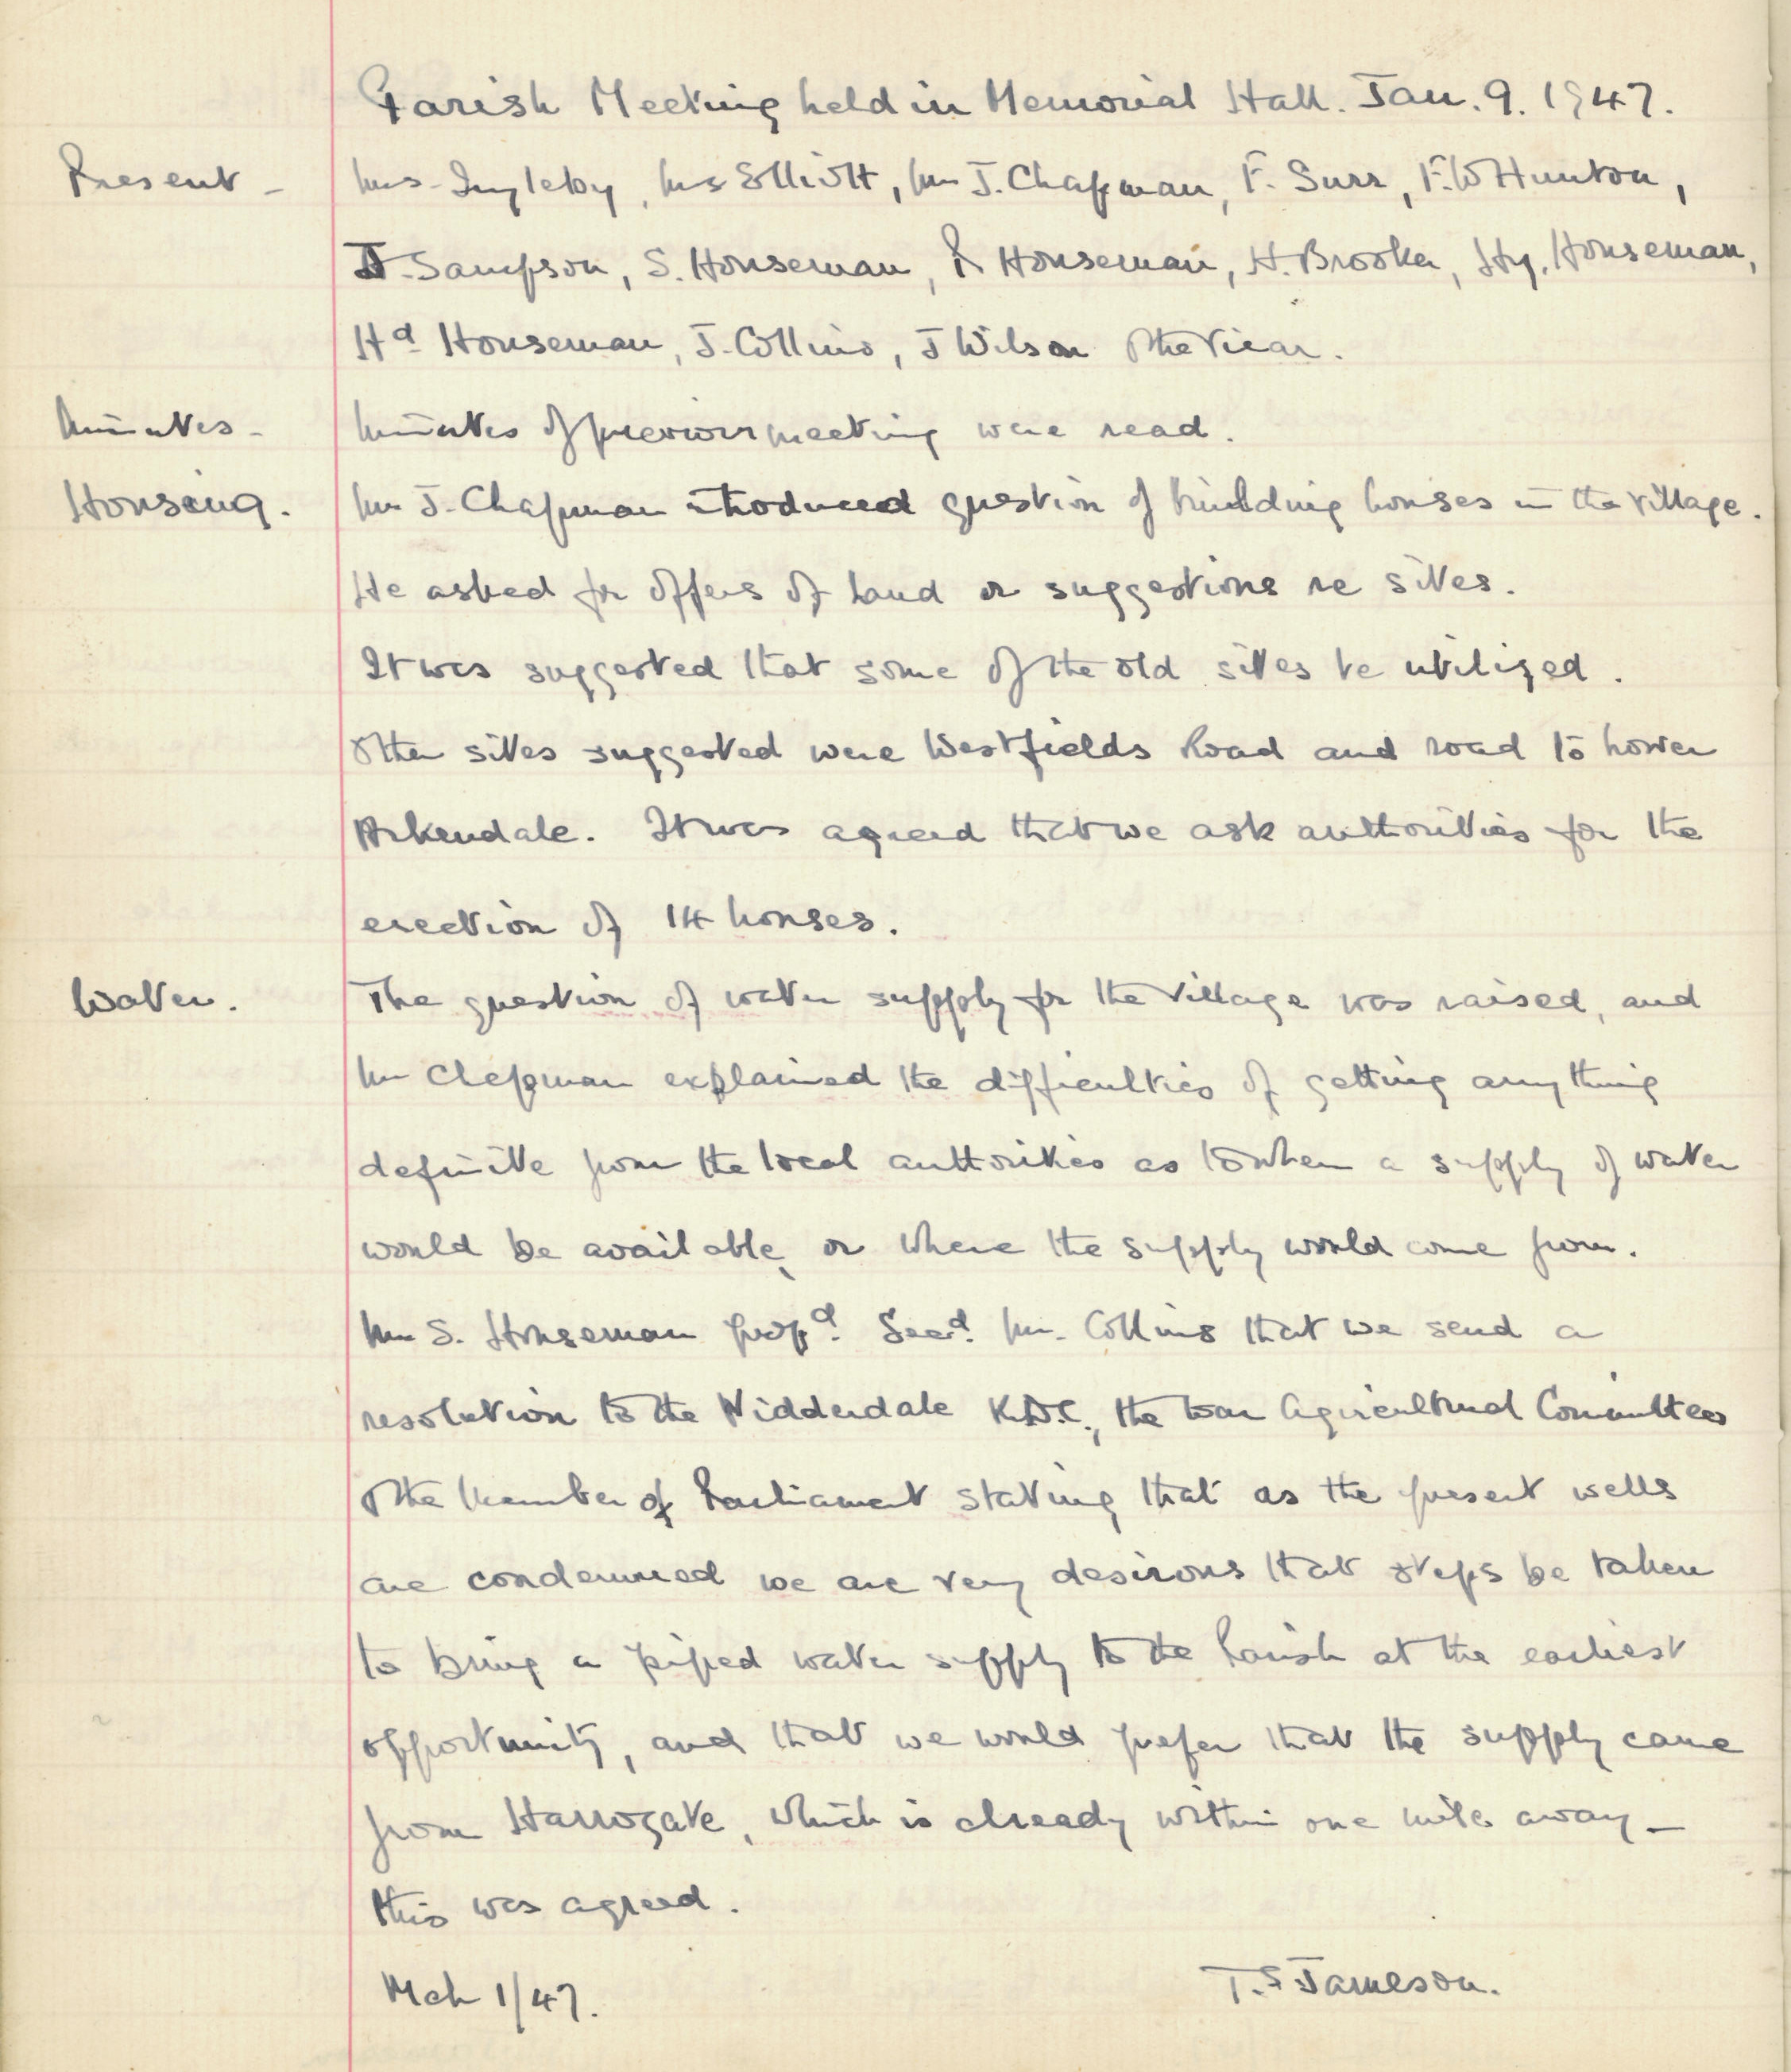 Parish Meeting held in Memorial Hall. Jan. 9. 1947.
Present - Mrs. Ingleby, Mrs Elliott, Mr J. Chapman, F. Surr, F.W Hunton,
J. Sampson, S. Houseman, R Houseman, H. Brooker, Hy. Houseman,
Hd Houseman, J. Collins, J Wilson & the Vicar.
Minutes - Minutes of previous meeting were read.
Housing. Mr J. Chapman introduced question of building houses in the village.
He asked for offers of land or suggestions re sites.
It was suggested that some of the old sites be utilized.
Other sites suggested were Westfields Road and road to Lower
Arkendale. It was agreed that we ask authorities for the
erection of 14 houses.
Water. The question of water supply for the village was raised, and
Mr Chapman explained the difficulties of getting anything
definite from the local authorities as to when a supply of water
would be available, or where the supply would come from.
Mr S. Houseman propd. Secd. Mr. Collins that we send a
resolution to the Nidderdale R.D.C., the War Agricultural Committee
& the Member of Parliament stating that as the present wells
are condemned we are very desirous that steps be taken
to bring a piped water supply to the Parish at the earliest
opportunity, and that we would prefer that the supply came
from Harrogate, which is already within one mile away -
this was agreed.
Mch 1/47. T.S Jameson.